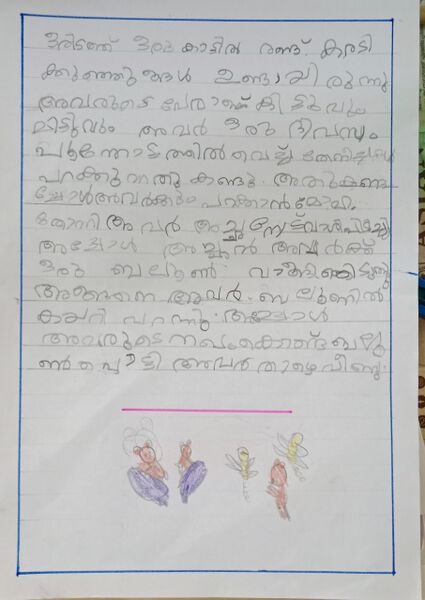 ഒരിടത്ത് ഒരു കാട്ടിൽ രണ്ട് കരടി
ക്കുഞ്ഞുങ്ങൾ ഉണ്ടായിരുന്നു
അവരുടെ പേരാണ് കിട്ടുവും
മിട്ടുവും അവർ ഒരു ദിവസം
പൂന്തോട്ടത്തിൽ വെച്ച് തേനീച്ചകൾ
പറക്കുന്നതു കണ്ടു. അതുകണ്ട
പ്പോൾ അവർക്കും പറക്കാൻ മോഹം
തോന്നി അവർ അച്ഛനോട് വാശിപിടിച്ചു
അപ്പോൾ അച്ഛൻ അവർക്ക്
ഒരു ബലൂൺ വാങ്ങിക്കൊടുത്തു
അങ്ങനെ അവർ. ബലൂണിൽ
കയറി പറന്നു. അപ്പോൾ
അവരുടെ നഖംകൊണ്ട് ബലൂ
ൺ പൊട്ടി അവർ താഴെവീണു.